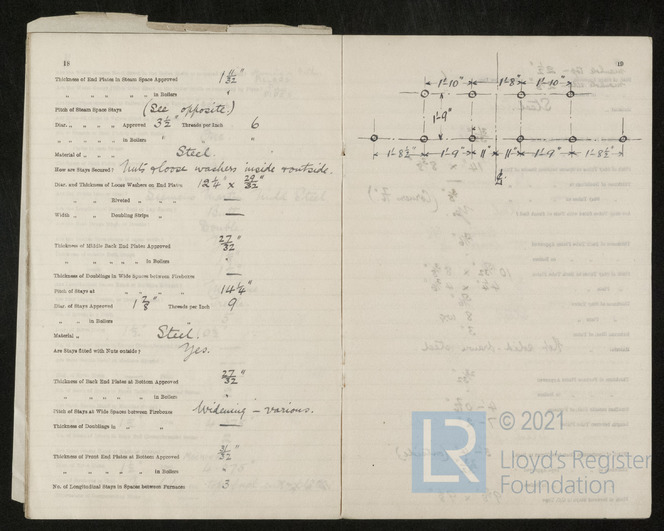 18
Thickness of End Plates in Steam Space Approved 1 11/32"
" " " " " in Boilers "
Pitch of Steam Space Stays (See opposite.)
Diar. " " " " Approved 3 1/2" Threads per Inch 6
" " " " in Boilers " " "
Material of " " Steel.
How are Stays Secured? Nuts & loose washers inside & outside.
Diar. and Thickness of Loose Washers on End Plates 12 1/4" x 29/32"
" " Riveted " " —
Width " " Doubling Strips " —
Thickness of Middle Back End Plates Approved 27/32"
" " " " " in Boilers "
Thickness of Doublings in Wide Spaces between Fireboxes —
Pitch of Stays at " " " " 14 1/4"
Diar. of Stays Approved 1 7/8" Threads per Inch 9
" " in Boilers " "
Material " Steel.
Are Stays fitted with Nuts outside? Yes.
Thickness of Back End Plates at Bottom Approved 27/32"
" " " " " in Boilers "
Pitch of Stays at Wide Spaces between Fireboxes Widening — various.
Thickness of Doublings in " " —
Thickness of Front End Plates at Bottom Approved
" " " " " in Boilers "
No. of Longitudinal Stays in Spaces between Furnaces 3
19
1'-10" 1'-8" 1'-10"
1'-9"
1'-8 1/2" 1'-9" 11" 11" 1'-9" 1'-8 1/2"
LR
© 2021
Lloyd's Register
Foundation